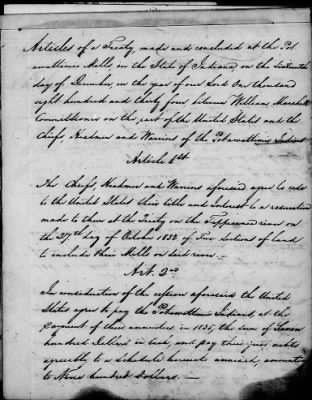 Articles of a Treaty, made and concluded at the Pot
awattimie Mills, in the State of Indiana, on the sixteenth
day of December, in the year of our Lord one thousand
eight hundred and thirty four, between William Marshall
Commissioner on the part of the United States and the
Chiefs, Headmen and Warriors of the Potawattimie Indians
Article 1st
The Chiefs, Headmen and Warriors aforesaid agree to cede
to the United States their title and interest to a reservation
made to them at the Treaty on the Tippecanoe river on
the 27th day of October 1832 of Two Sections of land
to include their Mills on said river. —
Art. 2nd
In consideration of the cession aforesaid the United
States agree to pay the Potawattimie Indians, at the
payment of their annuities in 1835, the sum of Seven
hundred dollars in Cash, and pay their just debts
agreeably to a schedule hereunto annexed, amounting
to Nine hundred Dollars. —